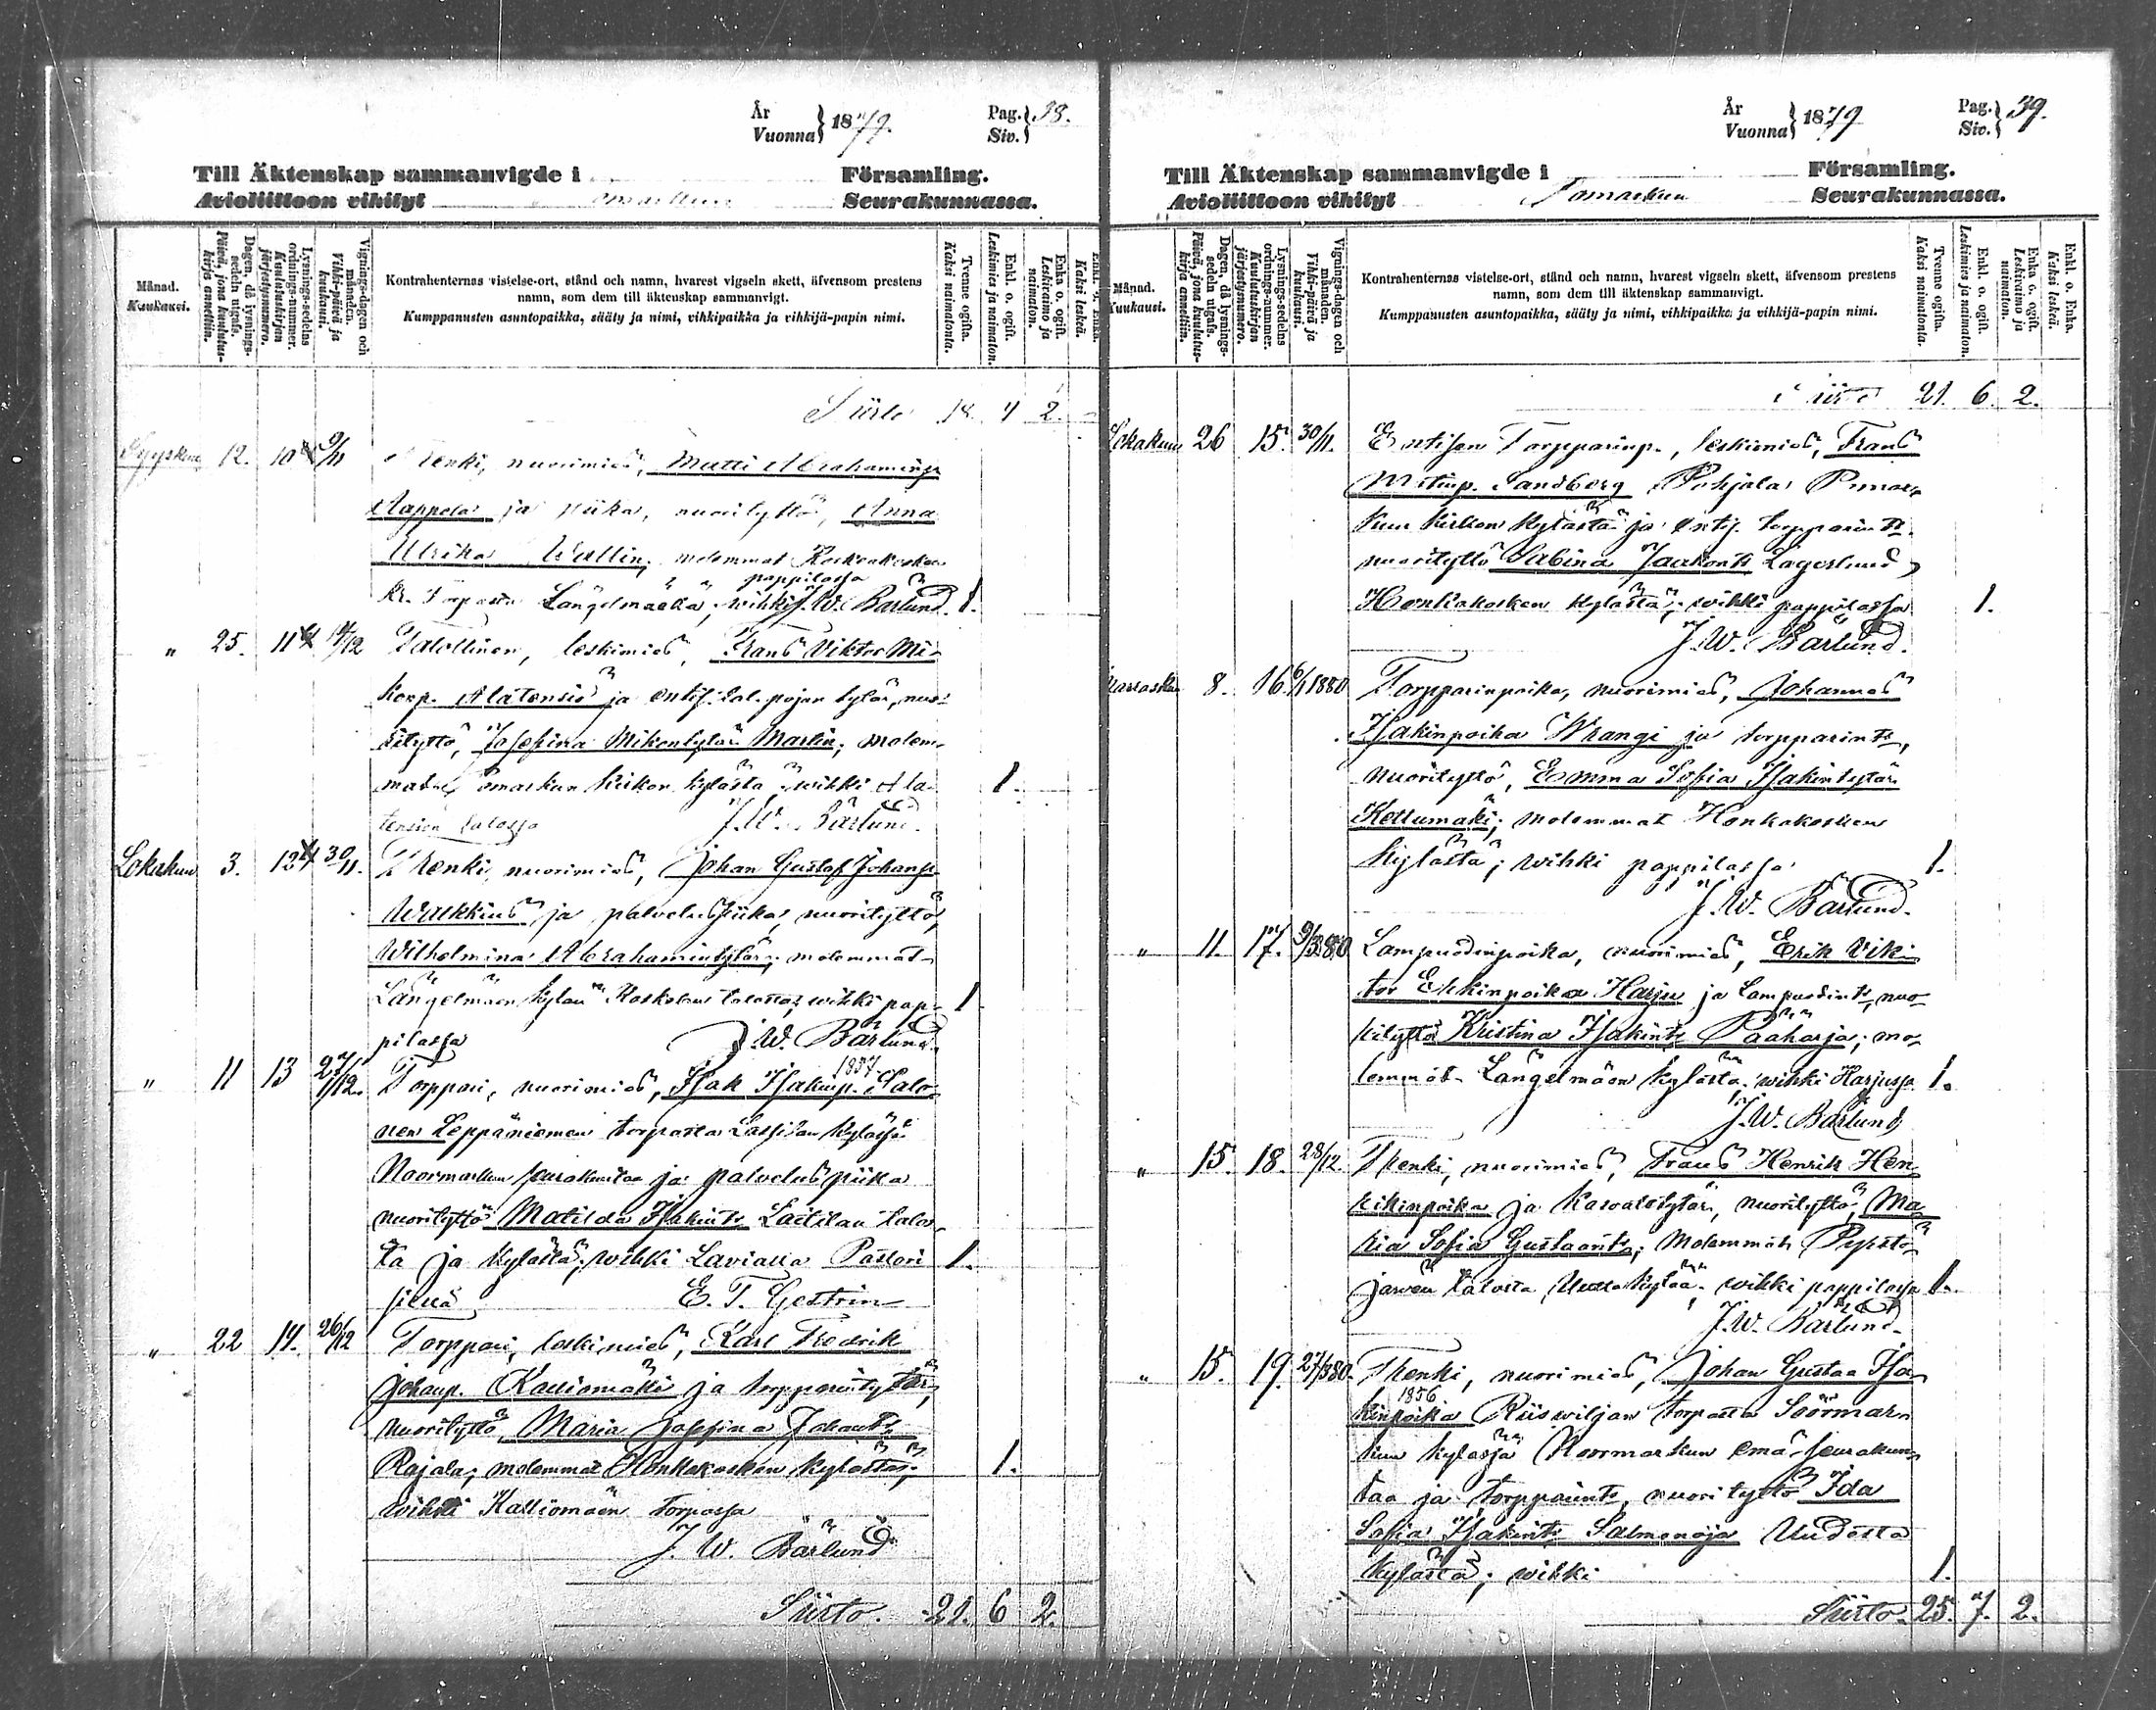 År
Vuonna } 1879.
Pag.
Siv. } 38.
Till Äktenskap sammanvigde i Församling.
Avioliittoon vihityt Seurakunnassa.
Månad.
Kuukausi.
Dagen, då lysnings-sedeln utgafs.
Päivä, jona kuulutus-kirja annettiin.
Lysnings-sedelns ordnings-nummer.
Kuulutuskirjan järjestysnumero.
Vignings-dagen och månaden.
Vihki-päivä ja kuukausi.
Kontrahenternas vistelse-ort, stånd och namn, hvarest vigseln skett, äfvensom prestens
namn, som dem till äktenskap sammanvigt.
Kumppanusten asuntopaikka, sääty ja nimi, vihkipaikka ja vihkijä-papin nimi.
Tvenne ogifta.
Kaksi naimatonta.
Enkl. o. ogift.
Leskimies ja naimaton.
Enka o. ogift.
Leskivaimo ja naimaton.
Enkl. o. Enka.
Kaksi leskeä.
Siirto 18. 4 2.
Syyskuu 12. 10 9/11 Renki, nuorimies, Matti Abrahaminp.
Aappola ja piika, nuorityttö, Anna
Ulrika Wallin, molemmat
pappilassa
Längelmäeltä; wihki J. W. Bärlund. 1.
" 25. 11 14/12 Talollinen, leskimies, Frans Viktor Mi-
konp. Alatensio ja entis. tal. pojan tytär, nuo-
rityttö, Josefina Mikontytär Martin; molem-
mat Pomarkun kirkon kylästä; wihki Ala- 1.
tension talossa J. W. Bärlund.
Lokakuu 3. 12 30/11. Renki, nuorimies, Johan Gustaf Johansp.
ja palveluspiika, nuorityttö,
Wilhelmina Abrahamintytär; molemmat
Längelmäen kylän Koskelan talossa; wihki pap- 1
pilassa J. W. Bärlund.
" 11 13 27/12. Torppari, nuorimies, Isak Isakinp. 1857 Salo-
nen Leppäniemen torpasta Lassilan kylässä
Noormarkun seurakuntaa ja palveluspiika
nuorityttö Matilda Isakint. Laitilan talos-
ta ja kylästä; wihki Laviassa Pastori 1.
E. T. Gestrin
" 22 14. 26/12 Torppari, leskimies, Karl Fredrik
Johanp. Kalliomäki ja torpparintytär,
nuorityttö, Maria Josefina Johant.
Rajala; molemmat Honkakosken kylästä; 1.
wihki Kalliomäen torpassa
J. W. Bärlund
Siirto. 21. 6 2.
År
Vuonna } 1879
Pag.
Siv. } 39.
Till Äktenskap sammanvigde i Församling.
Avioliittoon vihityt Pomarkun Seurakunnassa.
Månad.
Kuukausi.
Dagen, då lysnings-sedeln utgafs.
Päivä, jona kuulutus-kirja annettiin.
Lysnings-sedelns ordnings-nummer.
Kuulutuskirjan järjestysnumero.
Vignings-dagen och månaden.
Vihki-päivä ja kuukausi.
Kontrahenternas vistelse-ort, stånd och namn, hvarest vigseln skett, äfvensom prestens
namn, som dem till äktenskap sammanvigt.
Kumppanusten asuntopaikka, sääty ja nimi, vihkipaikka ja vihkijä-papin nimi.
Tvenne ogifta.
Kaksi naimatonta.
Enkl. o. ogift.
Leskimies ja naimaton.
Enka o. ogift.
Leskivaimo ja naimaton.
Enkl. o. Enka.
Kaksi leskeä.
Siirto 21. 6. 2.
Lokakuu 26 15. 30/11. Entisen Torpparinp., leskimies, Frans
Sandberg Pohjala Pomar-
kun kirkon kylästä ja entis. torpparint.
nuorityttö Sabina Jaakont. Lagerlund
Honkakosken kylästä; wihki pappilassa 1.
J. W. Bärlund.
Marraskuu 8. 16. 6/1 1880 Torpparinpoika, nuorimies, Johannes
Isakinpoika Wrangi ja torpparint.,
nuorityttö, Emma Sofia Isakintytär
Kettumäki; molemmat Honkakosken
kylästä; wihki pappilassa 1.
J. W. Bärlund.
" 11. 17. 9/3 80 Lampuodinpoika, nuorimies, Erik Vik-
tor Erkinpoika Harju ja lampuodint., nuo-
rityttö Kristina Isakint. Pääharja; mo-
lemmat Längelmäen kylästä; wihki Harjussa 1.
J. W. Bärlund
" 15. 18. 28/12. Renki, nuorimies, Frans Henrik Hen-
rikinpoika ja kasvatitytär, nuorityttö, Ma-
ria Sofia Gustaant.; molemmat
järven talosta, Uudesta kylää; wihki pappilassa 1.
J. W. Bärlund.
" 15. 19. 27/3 80. Renki, nuorimies, Johan Gustaa Isa-
1856
kinpoika Riiswiljan torpasta Söörmar-
kun kylässä Noormarkun emä-seurakun-
taa ja torpparint., nuorityttö Ida
Sofia Isakint. Salmenoja Uudesta
kylästä; wihki 1.
Siirto. 25. 7. 2.